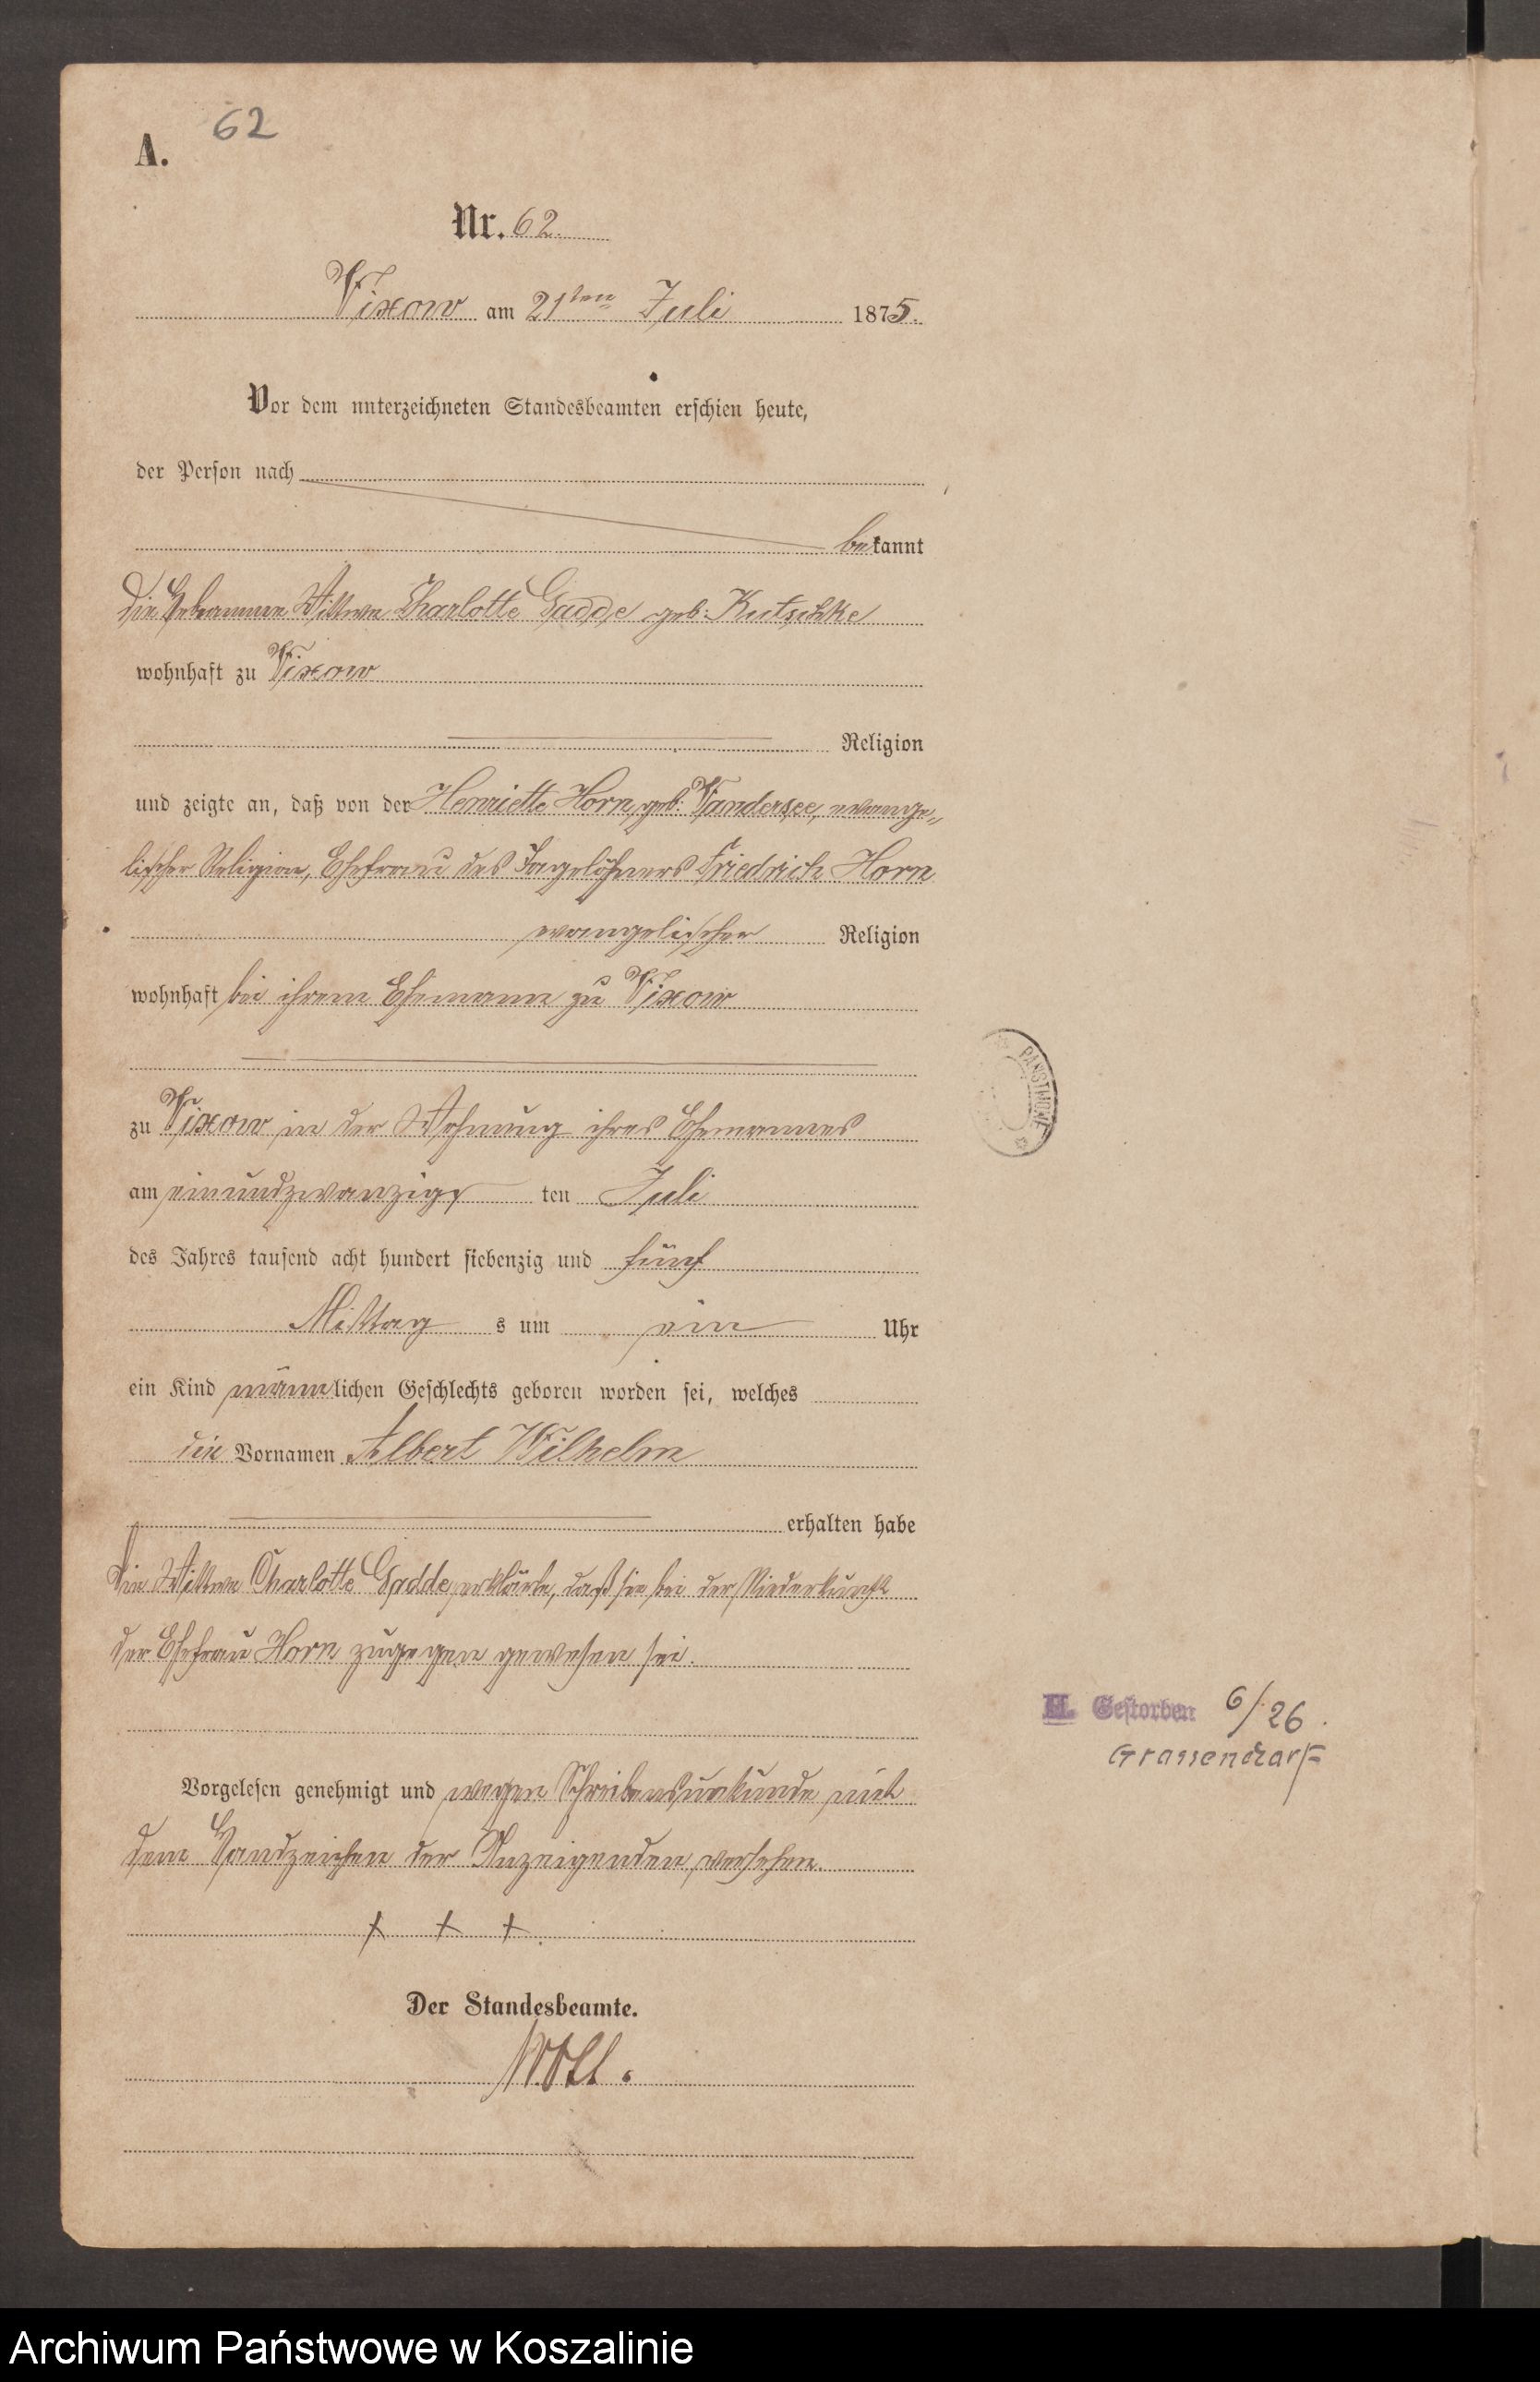 62
A.
Nr. 62.
Vixow am 21ten Juli 1875.
Vor dem unterzeichneten Standesbeamten erschien heute,
der Person nach
bekannt
die Hebamme Wittwe Charlotte Gadde geb: Kutschke
wohnhaft zu Vixow
Religion
und zeigte an, daß von der Henriette Horn, geb: Vandersee, evange„
lischer Religion, Ehefrau des Tagelöhners Friedrich Horn
evangelischer Religion
wohnhaft bei ihrem Ehemann zu Vixow
zu Vixow in der Wohnung ihres Ehemannes
am einundzwanzig ten Juli
des Jahres tausend acht hundert siebenzig und fünf
Mittag s um ein Uhr
ein Kind männlichen Geschlechts geboren worden sei, welches
die Vornamen Albert Wilhelm
erhalten habe
Die Wittwe Charlotte Gadde erklärte, daß sie bei der Niederkunft
der Ehefrau Horn zugegen gewesen sei.
Vorgelesen genehmigt und wegen Schreibensunkunde mit
dem Handzeichen der Anzeigenden versehen.
+ + +
Der Standesbeamte.
PAŃSTWOWE
H. Gestorben 6/26.
Archiwum Państwowe w Koszalinie